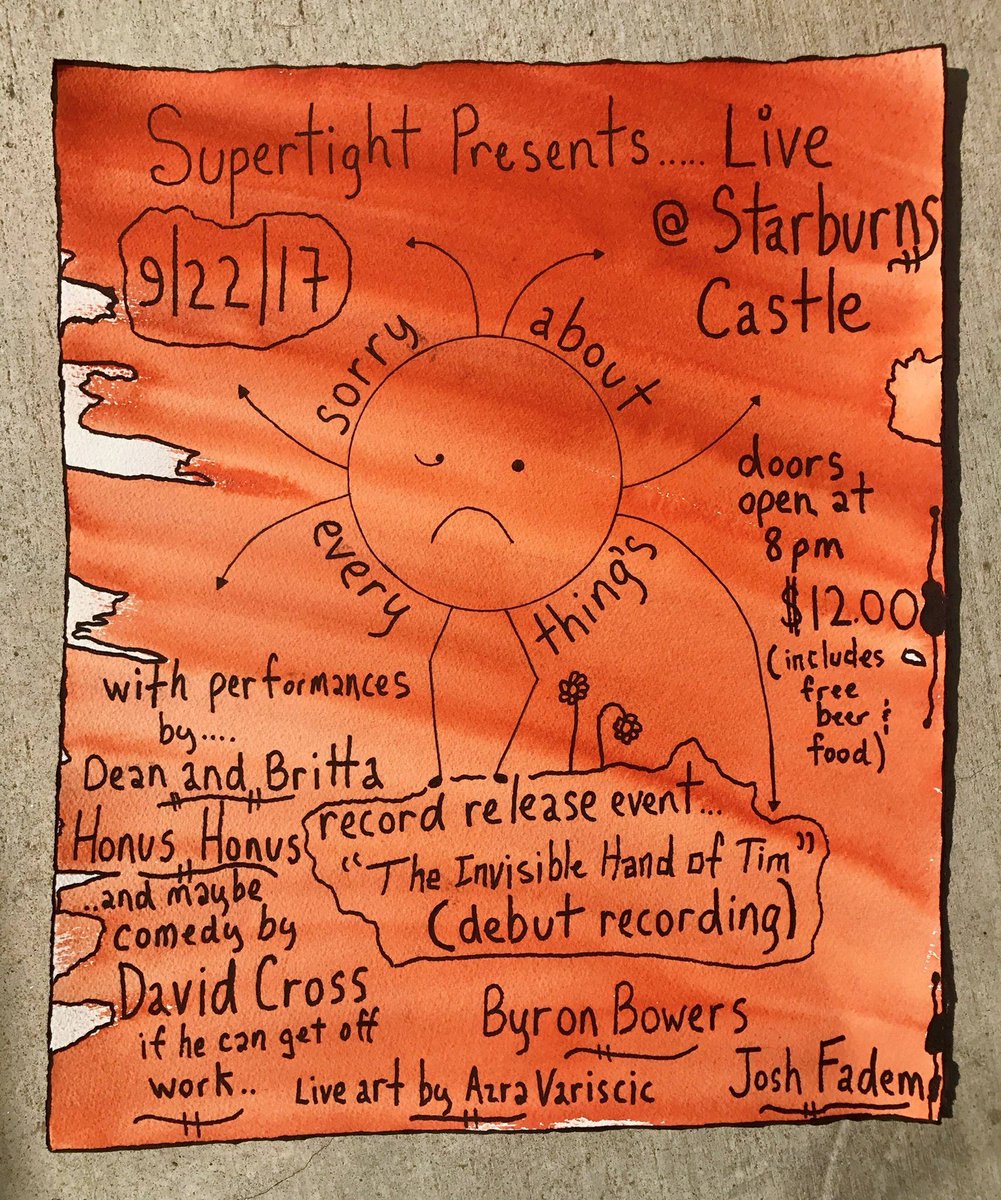 Supertight Presents...... Live
@ Starburns
Castle
9/22/17
sorry
about
every
thing's
doors
open at
8 pm
$12.00
(includes
free
beer &
food)
with performances
by....
Dean and Britta
Honus Honus
..and maybe
comedy by
David Cross
if he can get off
work..
record release event...
"The Invisible Hand of Tim"
(debut recording)
Byron Bowers
Live art by Azra Variscic
Josh Fadem